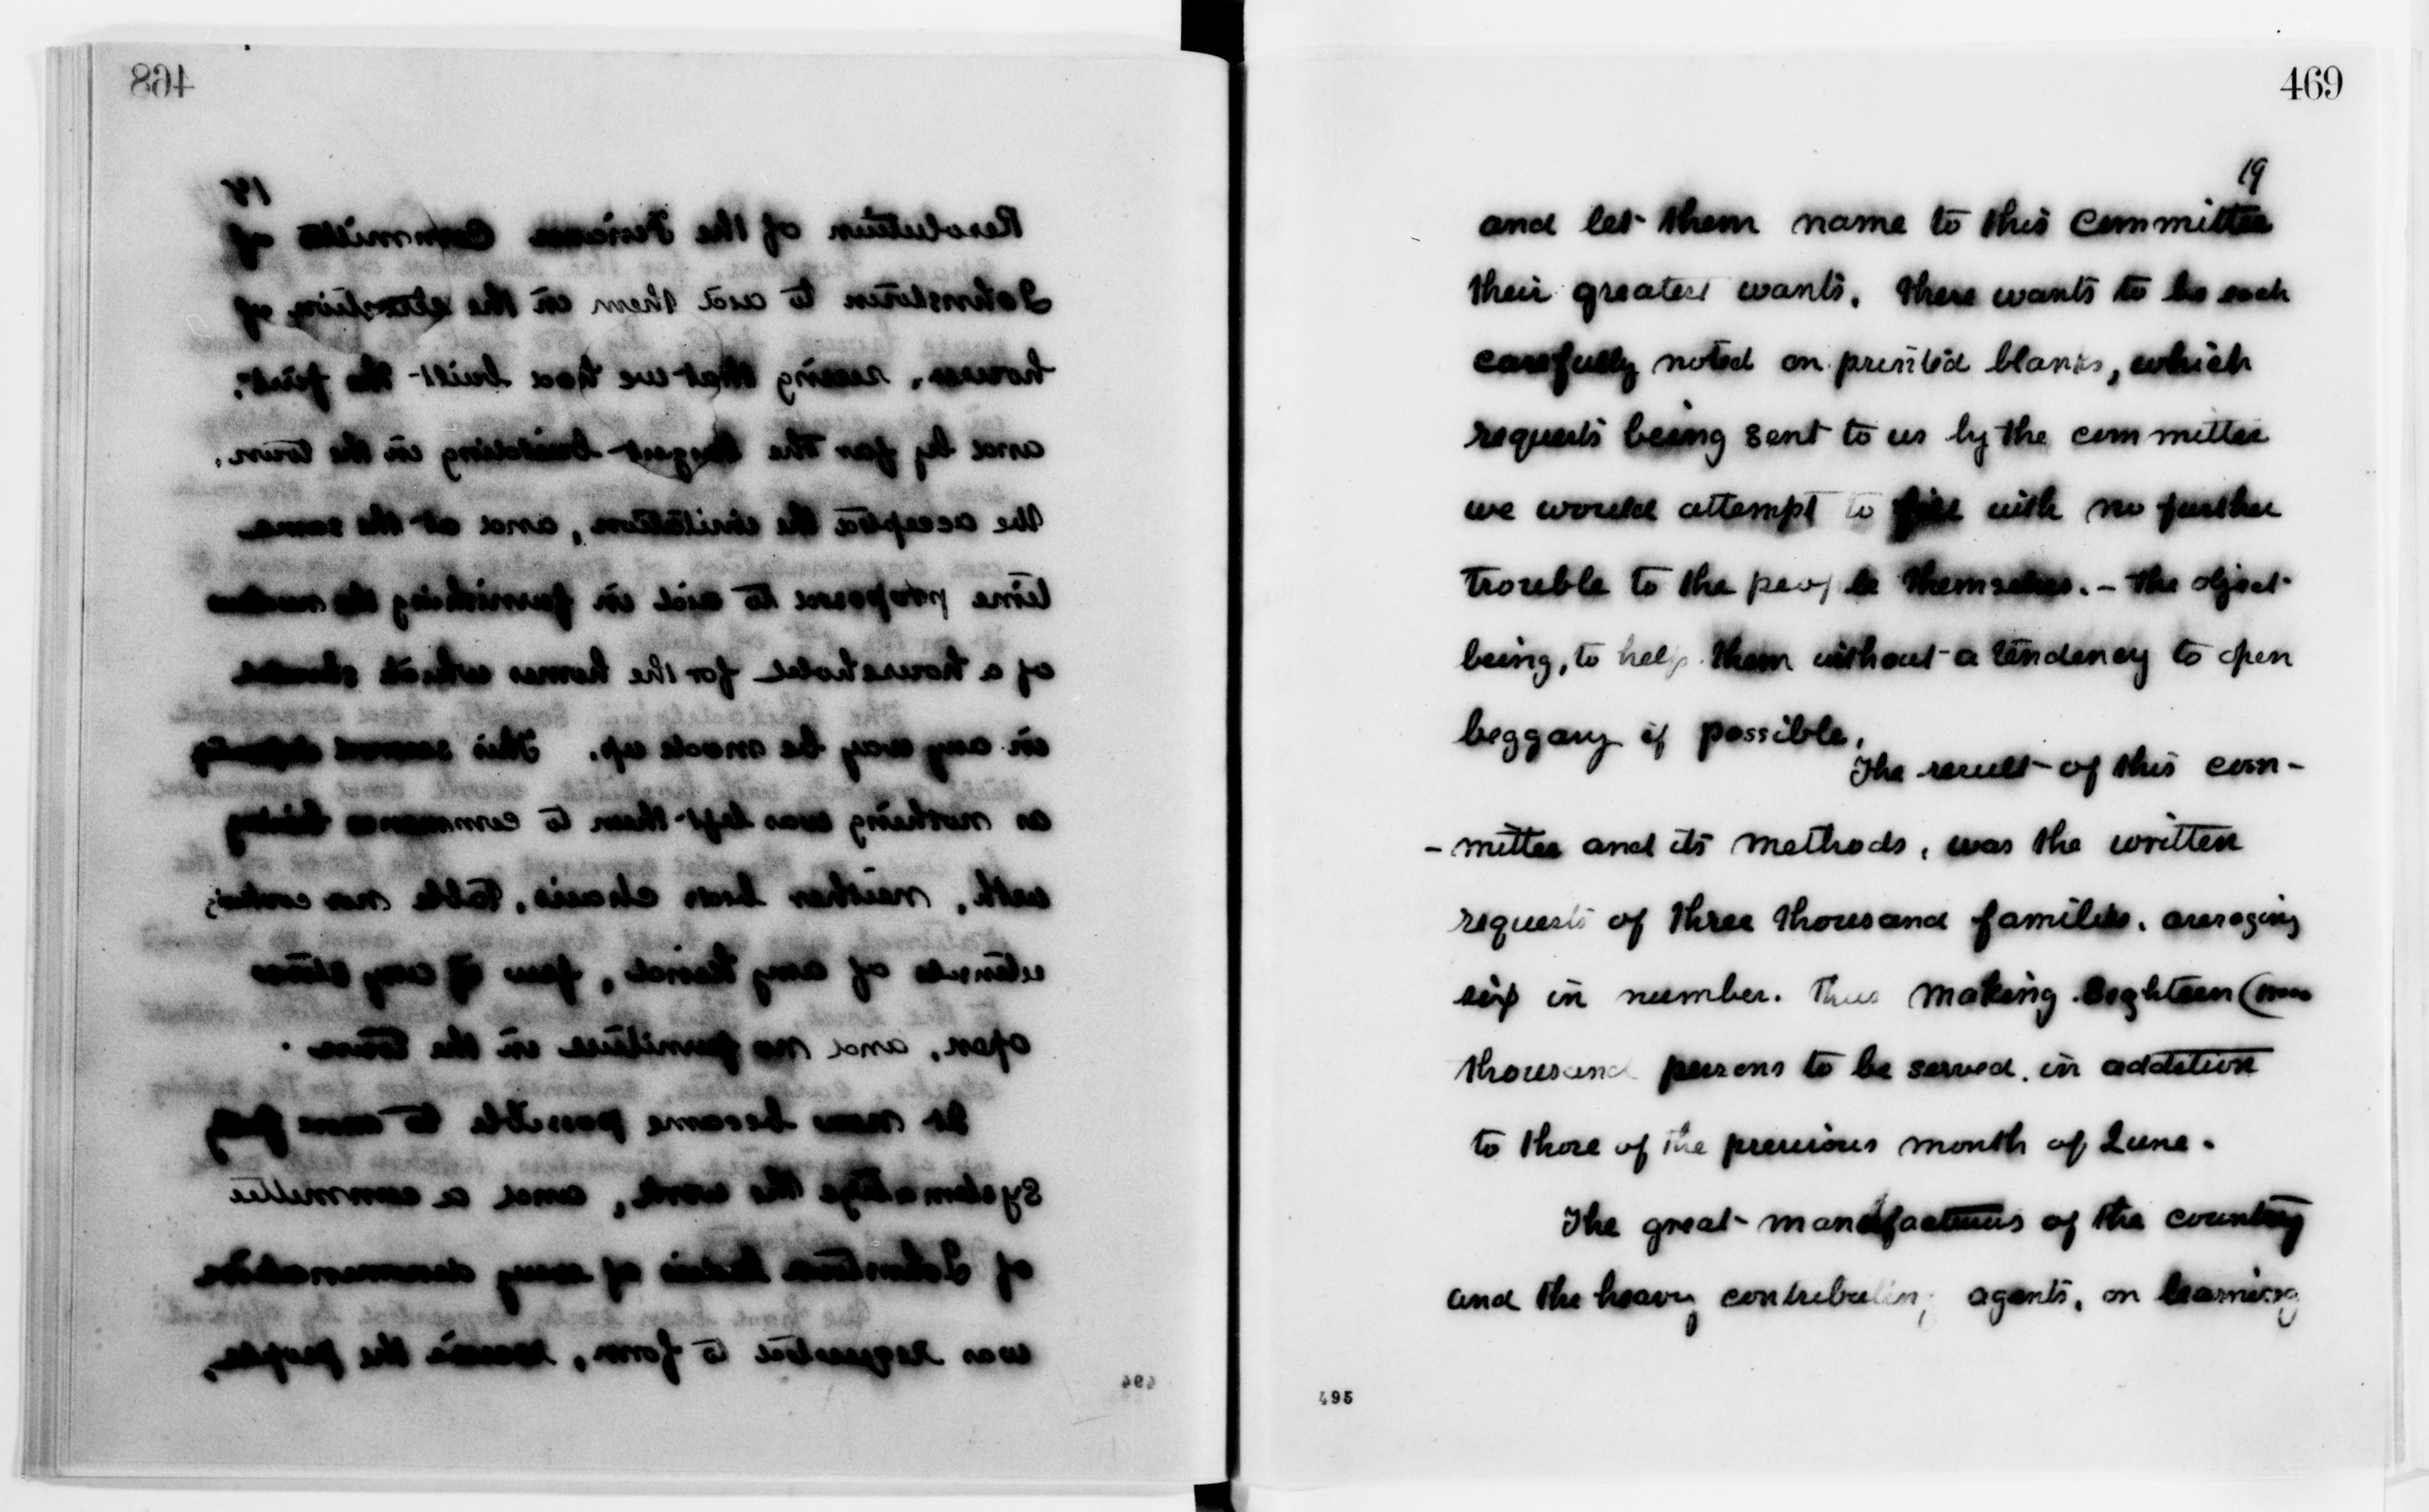 468
18
Resolution of the Finance Committee of
Johnstown to aid them in the erection of
houses, seeing that we had built the first,
and by far the largest building in the town.
We accepted the invitation, and at the same
time proposed to aid in furnishing the
of a household for the homes which should
in any way be made up. This seemed
as nothing was left them to commence living
with, neither beds chairs, table nor cooking
utensils of any kind, few if any stores
open, and no furniture in the town.
It now became possible to more fully
systematize the work, and a committee
of Johnstown ladies of every denomination
was requested to form, receive the people,
494
469
19
and let them name to this Committee
their greatest wants. These wants to be each
carefully noted on printed blanks, which
requests being sent to us by the committee
we would attempt to fill with no further
trouble to the people themselves. – The object
being, to help them without a tendency to open
beggary if possible.
The result of this com-
- mittee and its methods, was the written
requests of three thousand families. averaging
six in number. Thus making Eighteen
thousand persons to be served. in addition
to those of the previous month of June.
The great manufacturies of the country
and the heavy contributing agents, on learning
495